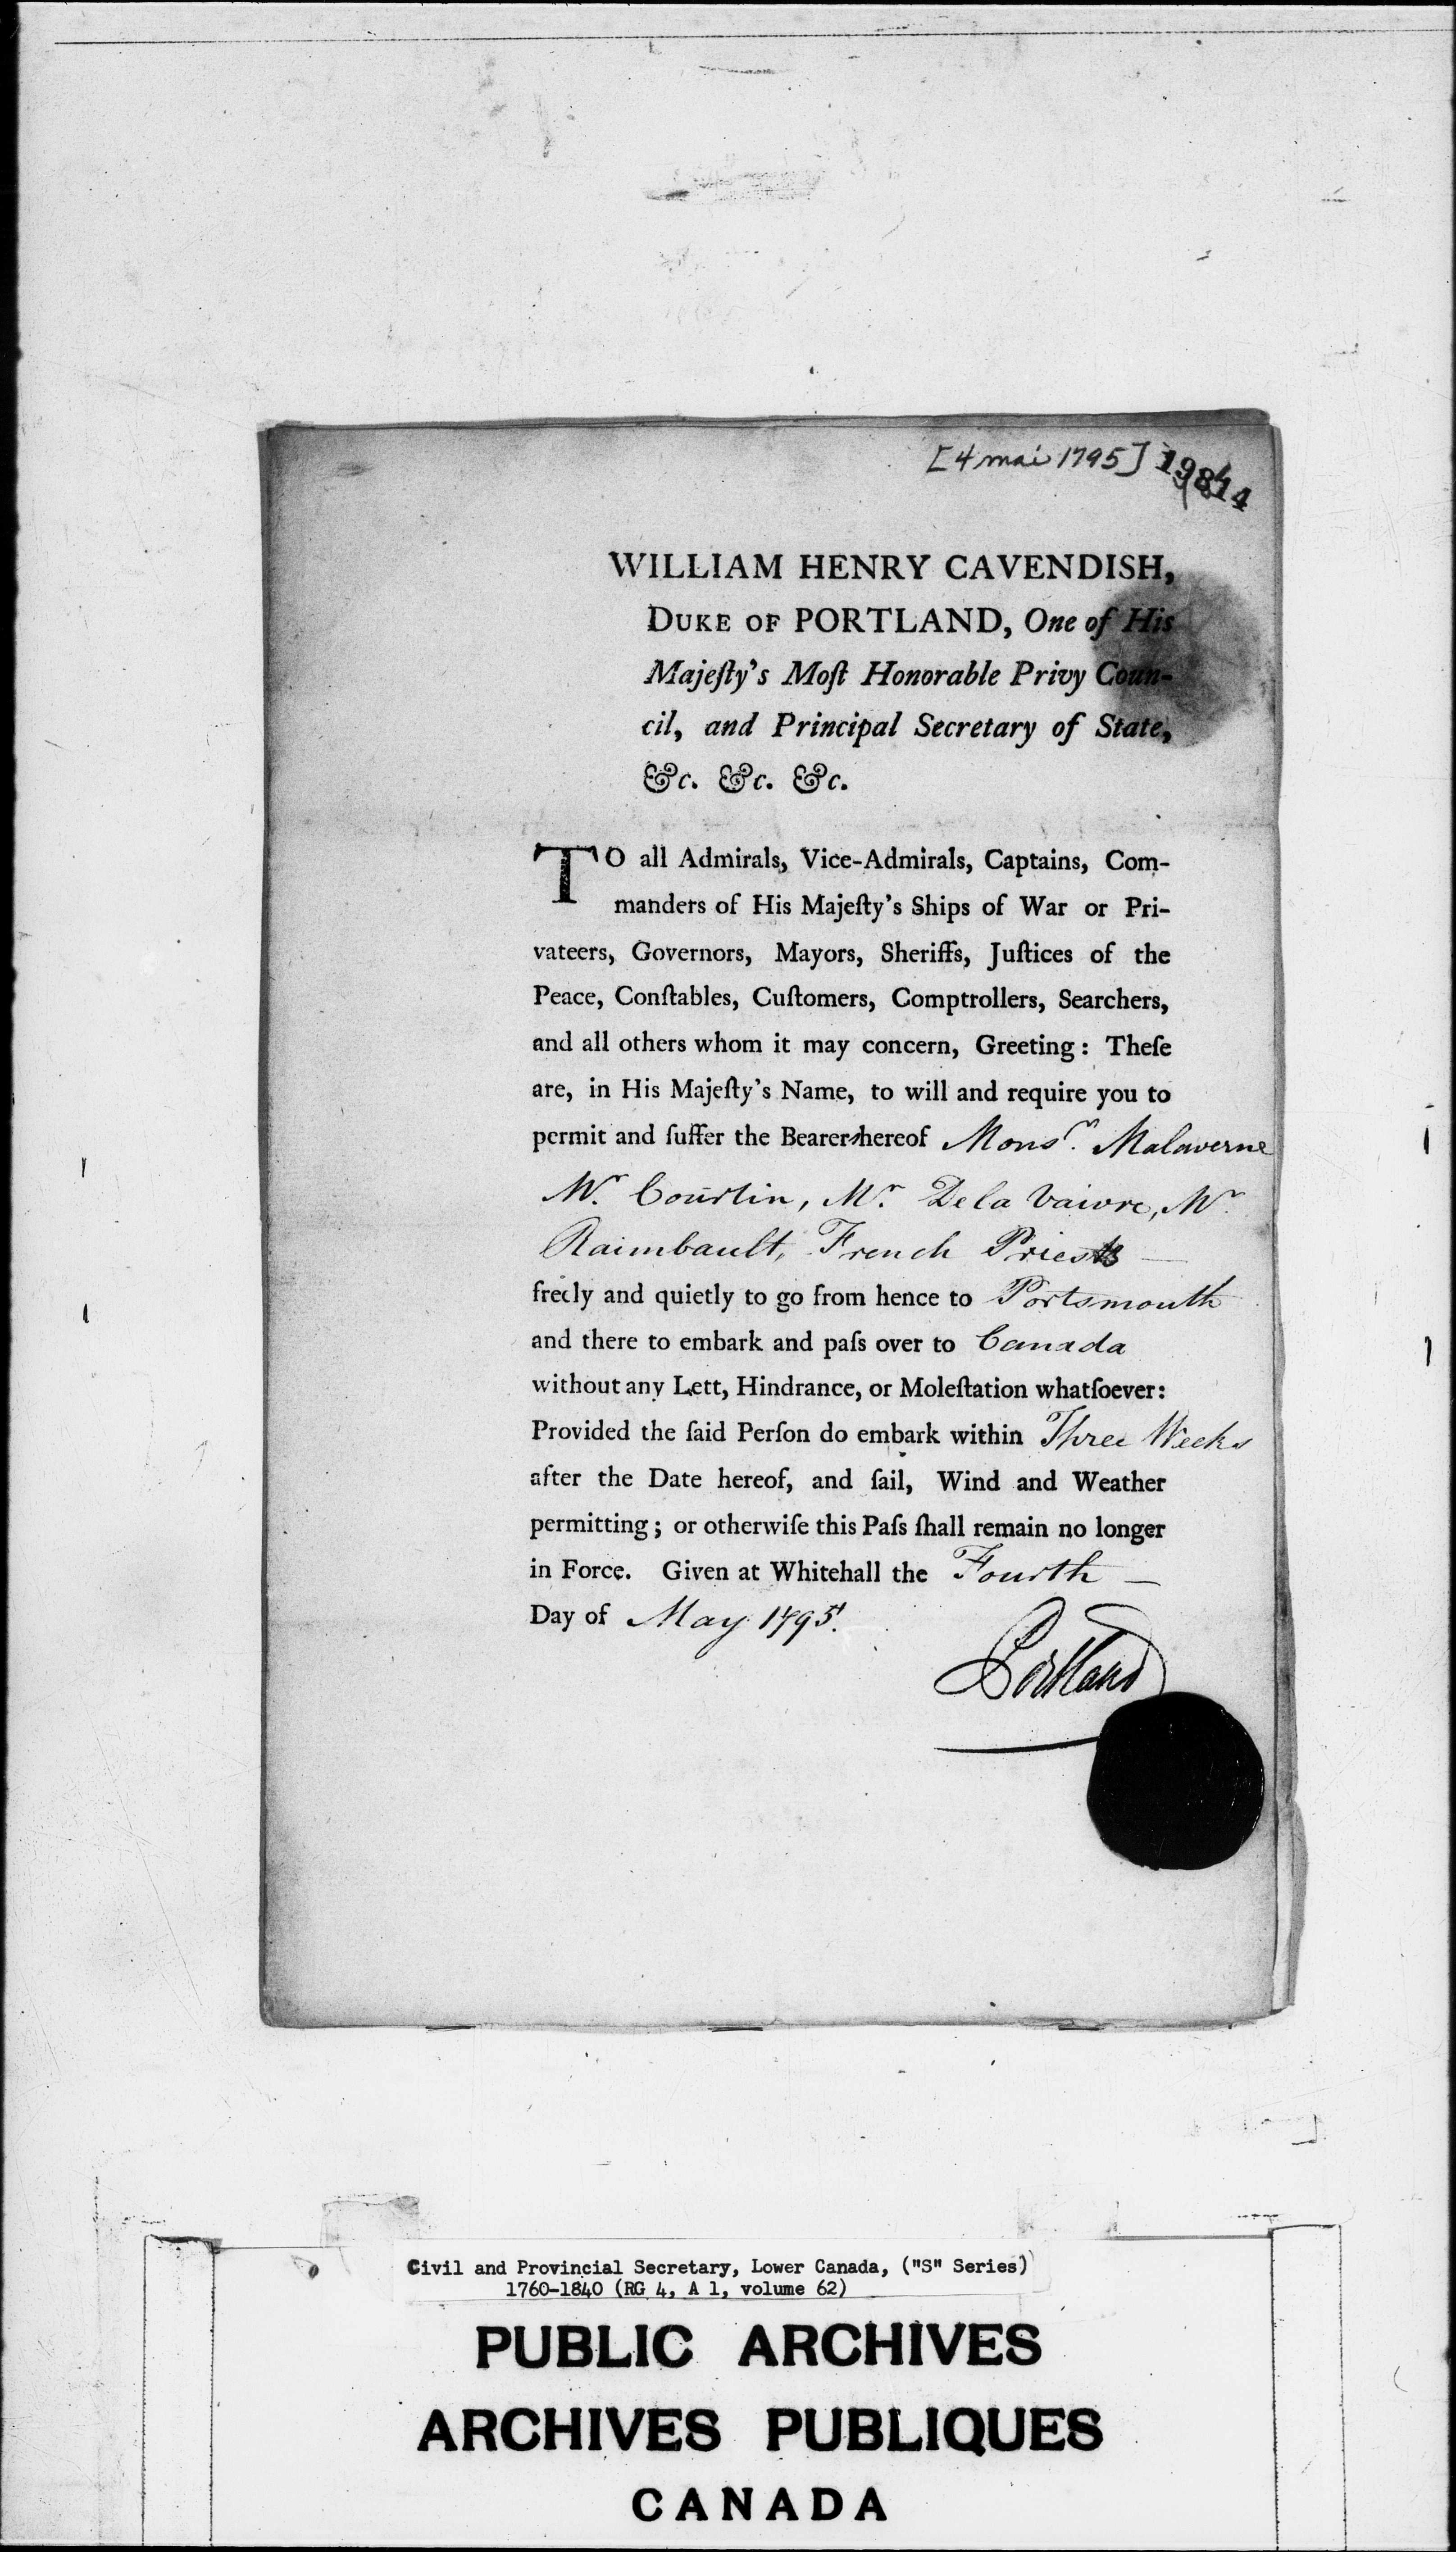 [4 mai 1795]
WILLIAM HENRY CAVENDISH,
DUKE OF PORTLAND, One of His
Majeſty's Moſt Honorable Privy Coun-
cil, and Principal Secretary of State,
&c. &c. &c.
TO all Admirals, Vice-Admirals, Captains, Com-
manders of His Majeſty's Ships of War or Pri-
vateers, Governors, Mayors, Sheriffs, Juſtices of the
Peace, Conſtables, Cuſtomers, Comptrollers, Searchers,
and all others whom it may concern, Greeting: Theſe
are, in His Majeſty's Name, to will and require you to
permit and ſuffer the Bearers hereof Monsrs. Malaverne
Mr. Courtin, Mr. De la Vaivre, Mr
Raimbault, French Priests —
freely and quietly to go from hence to Portsmouth
and there to embark and paſs over to Canada
without any Lett, Hindrance, or Moleſtation whatſoever:
Provided the ſaid Perſon do embark within Three Weeks
after the Date hereof, and ſail, Wind and Weather
permitting; or otherwiſe this Paſs ſhall remain no longer
in Force. Given at Whitehall the Fourth —
Day of May 1795.
Portland
Civil and Provincial Secretary, Lower Canada, ("S" Series)
1760-1840 (RG 4, A 1, volume 62)
PUBLIC ARCHIVES
ARCHIVES PUBLIQUES
CANADA